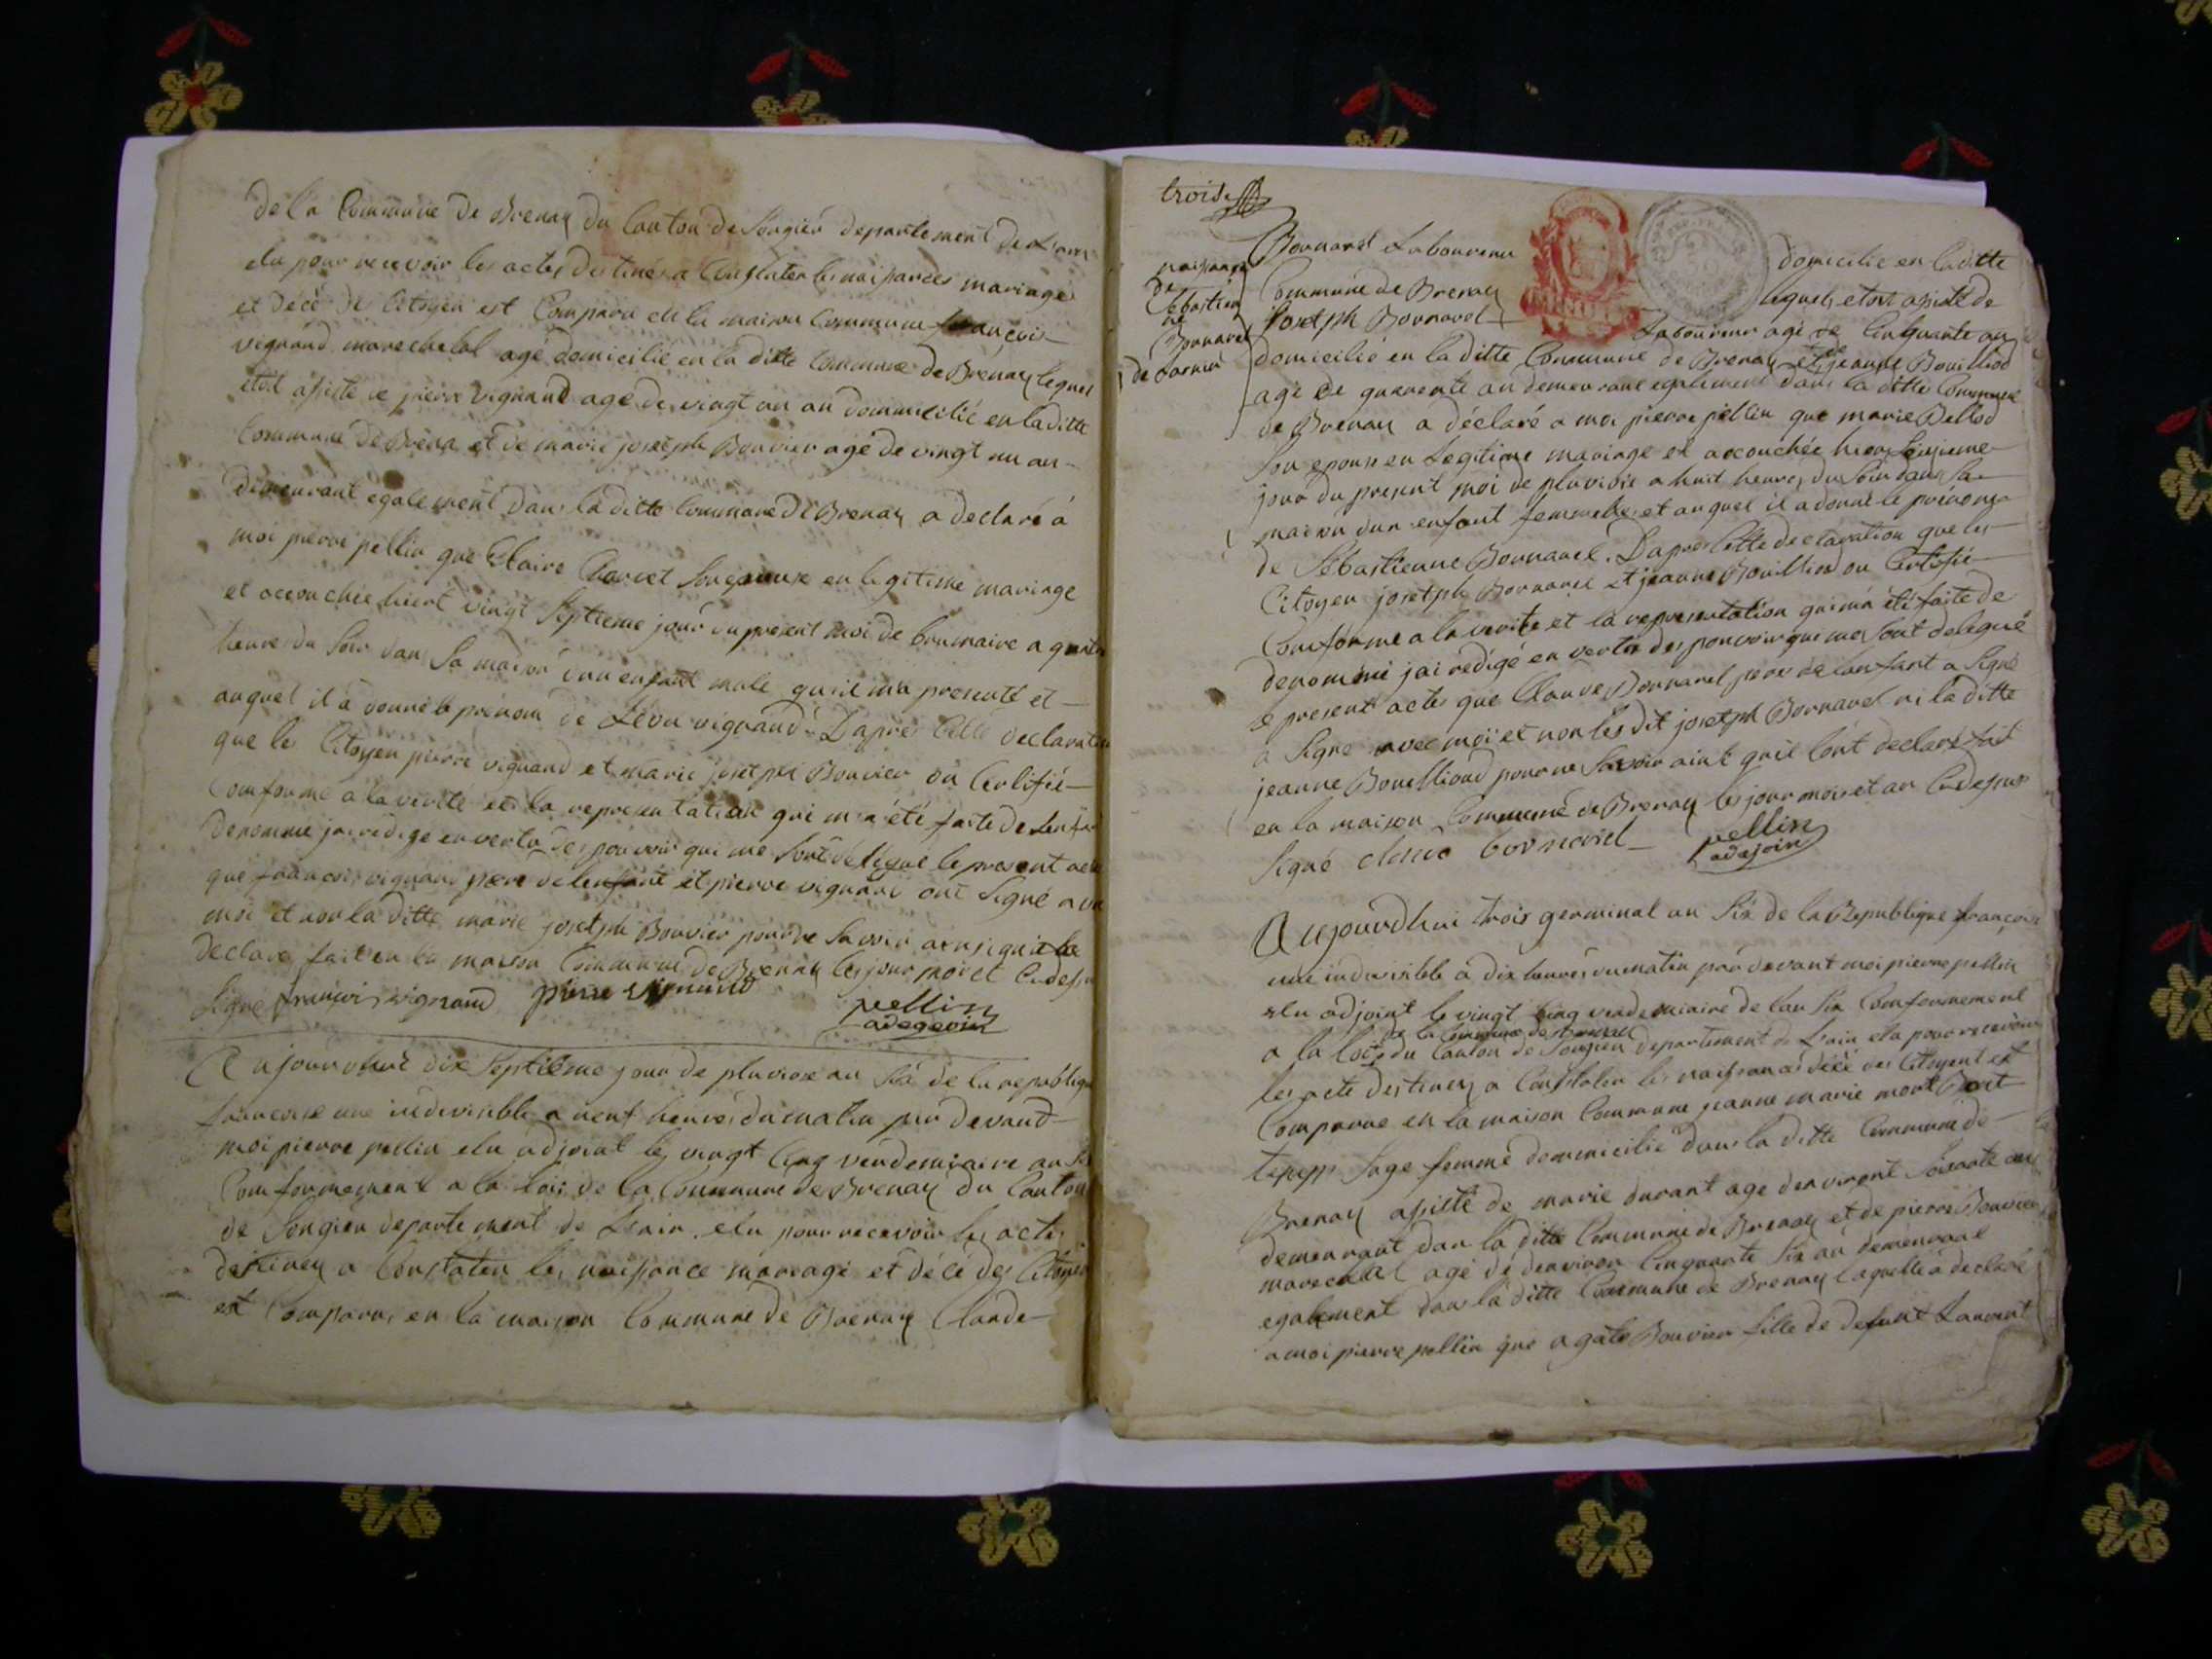 de la Commune de Brenaz du Canton de Songieu departement de L'ain
elu pour recevoir les actes destinés a Constater les naissances mariage
et décé de Citoyen est Comparu en la maison Commune françois
vignand marechal agé domicilié en la ditte Commune de Brenaz lequel
etoit assisté de pierre vignand age de vingt un an dommicilié en la ditte
Commune de Brena et de marie joseph Bouvier age de vingt un an
demeurant egalement dans la ditte Commune de Brenaz a declaré a
moi pierre pellin que Claire Charvet son epouse en legitime mariage
et accouchée hiert vingt septieme jour du present moi de brumaire a quatre
heure du soir dans sa maison d'un enfant male qu'il ma presenté et
auquel il a donné le prenom de vignand. D'apres Cette declaration
que les Citoyen pierre vignand et marie joseph Bouvier on Certifié
Conforme a la verité et la representation qui m'a été faite de Lenfant
denommé jai redige en vertu des pouvoir qui me sont délégué le present acte
que françois vignand pere de lenfant et pierre vignand ont signé avec
moi et non la ditte marie joseph Bouvier pour ne savoir ainsi quil la
declaré fait en la maison Commune de Brenaz les jour moi et Cidessu
Signe françois vignand pierre vignand
pellin
adegoin
Aujourdhui dix septième jour de pluviose an six de la republique
francoise une indivisible a neuf heures du matin par devant
moi pierre pellin elu adjoint le vingt cinq vendemiaire an six
Conformement a la lois de la Commune de Brenaz du Canton
de Songieu departement de L'ain elu pour recevoir les actes
destinez a Constater les naissance mariage et décé des Citoyen
est Comparu en la maison Commune de Brenaz Claude
trois
naissance
de
Sebastien
ne
Bornarel
de
Bornarel Laboureur domicilie en la ditte
Commune de Brenaz lequel etoit assisté de
Joseph Bornarel Laboureur agé de Cinquante an
domicilié en la ditte Commune de Brenaz et de jeanne Bouilliod
agé de quarente an demeurant egalement dans la ditte Commune
de Brenaz a déclaré a moi pierre pellin que marie Bellod
son epouse en Legitime mariage et accouchée hier seizieme
jour du present moi de pluviose a huit heures du soir dans sa
maison d'un enfant femmelle et auquel il a donné le prenom
de Sebastienne Bornarel. Dapres Cette declaration que les
Citoyen joseph Bornarel et jeanne Bouilliod on Certifié
Conforme a la verité et la representation qui m'a été faite de
denommé jai redigé en vertu des pouvoir qui me sont delegué
le present acte que Claude Bornarel pere de lenfant a signé
a signe avec moi et non les dit joseph Bornarel ni la ditte
jeanne Bouilliod pour ne savoir ainsi quil lont declaré fait
en la maison Commune de Brenaz les jour mois et an Cidessus
Signé claude bornarel
pellin
adejoin
Aujourdhui trois germinal an six de la Republique françoise
une indivisible a dix heures du matin par devant moi pierre pellin
elu adjoint le vingt cinq vendemiaire de lan six Conformement
de la Commune de Brenaz
a la lois du Canton de Songieu departement de L'ain elu pour recevoir
les acte destinez a Constater les naissances décé des Citoyent est
Comparue en la maison Commune jeanne marie mont
sage femme dommicilie dans la ditte Commune de
Brenaz assisté de marie durant age denviront soixante an
demeurant dan la ditte Commune de Brenaz et de pierre Bouvier
marechal agé de denviron Cinquante six an demeurant
egalement dans la ditte Commune de Brenaz laquelle a declaré
a moi pierre pellin que agate Bouvier fille de defunt Laurent